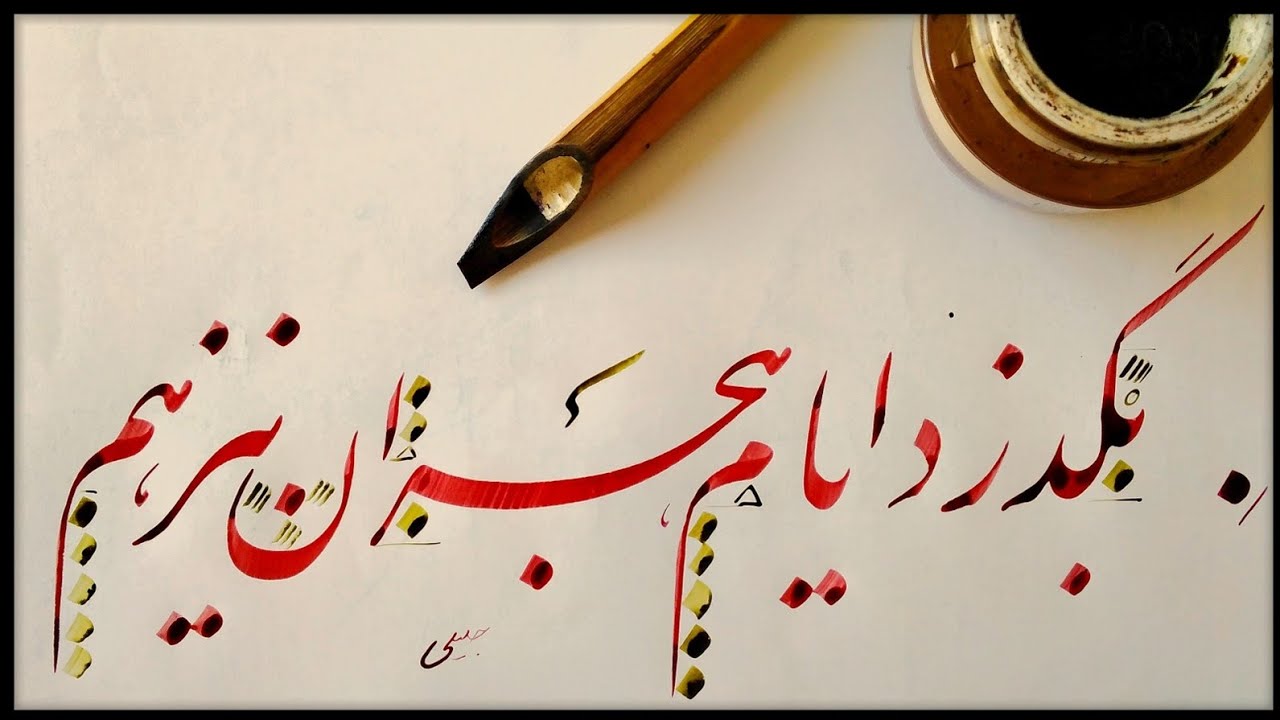 بگذرد ایام هجران نیز هم
جلیلی